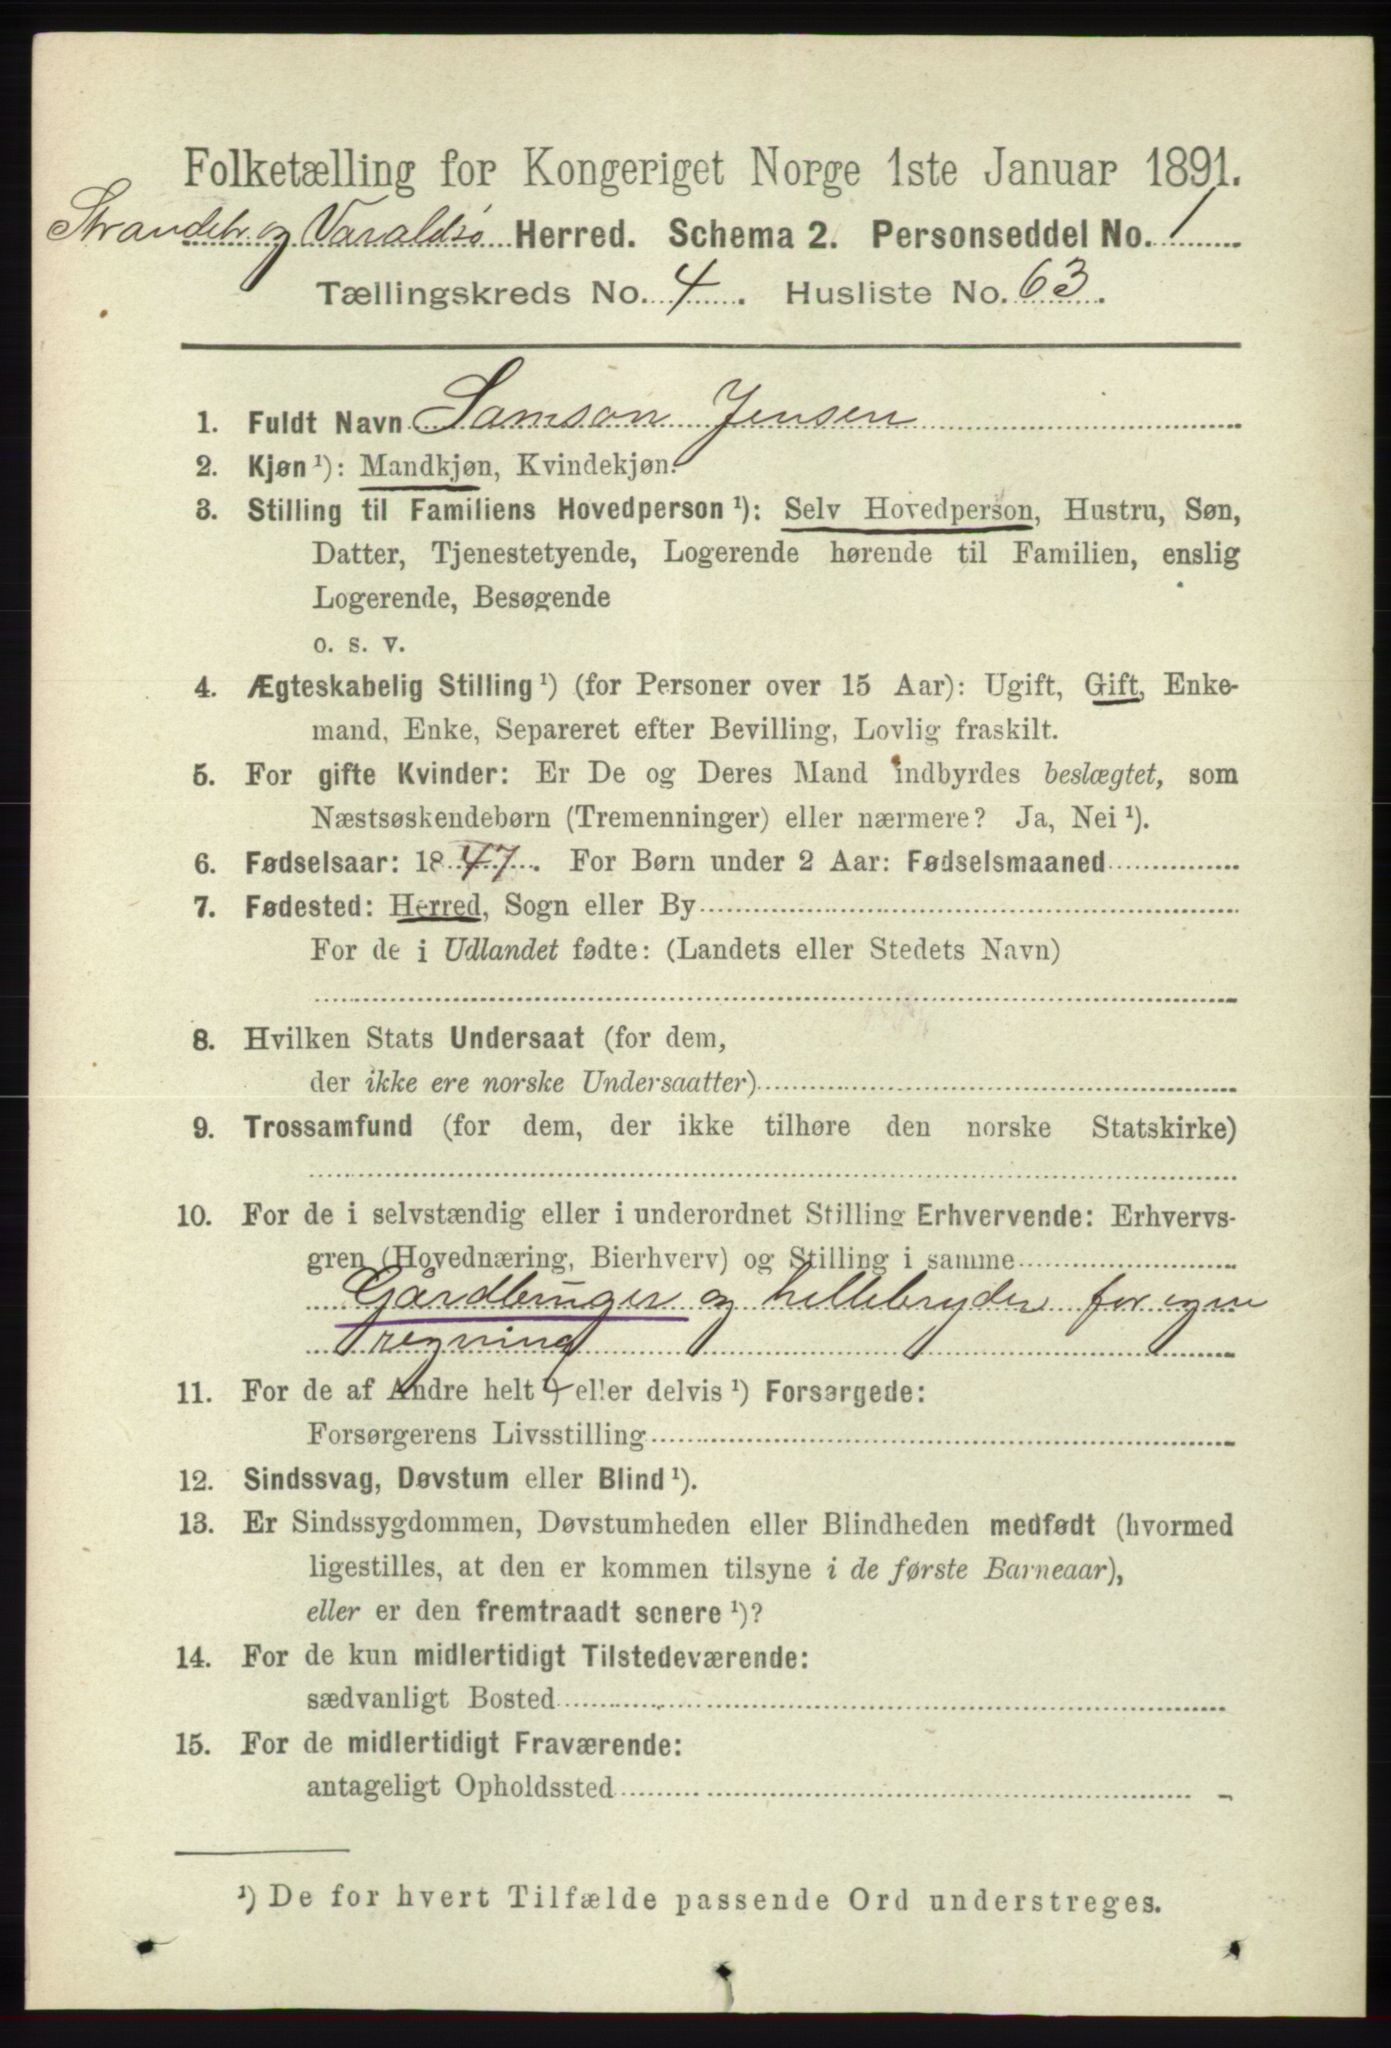 Folketælling for Kongeriget Norge 1ste Januar 1891.
Strandebr. og Varaldsø Herred. Schema 2. Personseddel No. 1
Tællingskreds No. 4. Husliste No. 63.
1. Fuldt Navn Samson Jensen
2. Kjøn ¹): Mandkjøn, Kvindekjøn.
3. Stilling til Familiens Hovedperson ¹): Selv Hovedperson, Hustru, Søn,
Datter, Tjenestetyende, Logerende hørende til Familien, enslig
Logerende, Besøgende
o. s. v.
4. Ægteskabelig Stilling ¹) (for Personer over 15 Aar): Ugift, Gift, Enke-
mand, Enke, Separeret efter Bevilling, Lovlig fraskilt.
5. For gifte Kvinder: Er De og Deres Mand indbyrdes beslægtet, som
Næstsøskendebørn (Tremenninger) eller nærmere? Ja, Nei ¹).
6. Fødselsaar: 1847. For Børn under 2 Aar: Fødselsmaaned
7. Fødested: Herred, Sogn eller By
For de i Udlandet fødte: (Landets eller Stedets Navn)
8. Hvilken Stats Undersaat (for dem,
der ikke ere norske Undersaatter)
9. Trossamfund (for dem, der ikke tilhøre den norske Statskirke)
10. For de i selvstændig eller i underordnet Stilling Erhvervende: Erhvervs-
gren (Hovednæring, Bierhverv) og Stilling i samme
Gårdbruger og hellebryder for egen
regning
11. For de af Andre helt eller delvis ¹) Forsørgede:
Forsørgerens Livsstilling
12. Sindssvag, Døvstum eller Blind ¹).
13. Er Sindssygdommen, Døvstumheden eller Blindheden medfødt (hvormed
ligestilles, at den er kommen tilsyne i de første Barneaar),
eller er den fremtraadt senere ¹)?
14. For de kun midlertidigt Tilstedeværende:
sædvanligt Bosted
15. For de midlertidigt Fraværende:
antageligt Opholdssted
¹) De for hvert Tilfælde passende Ord understreges.